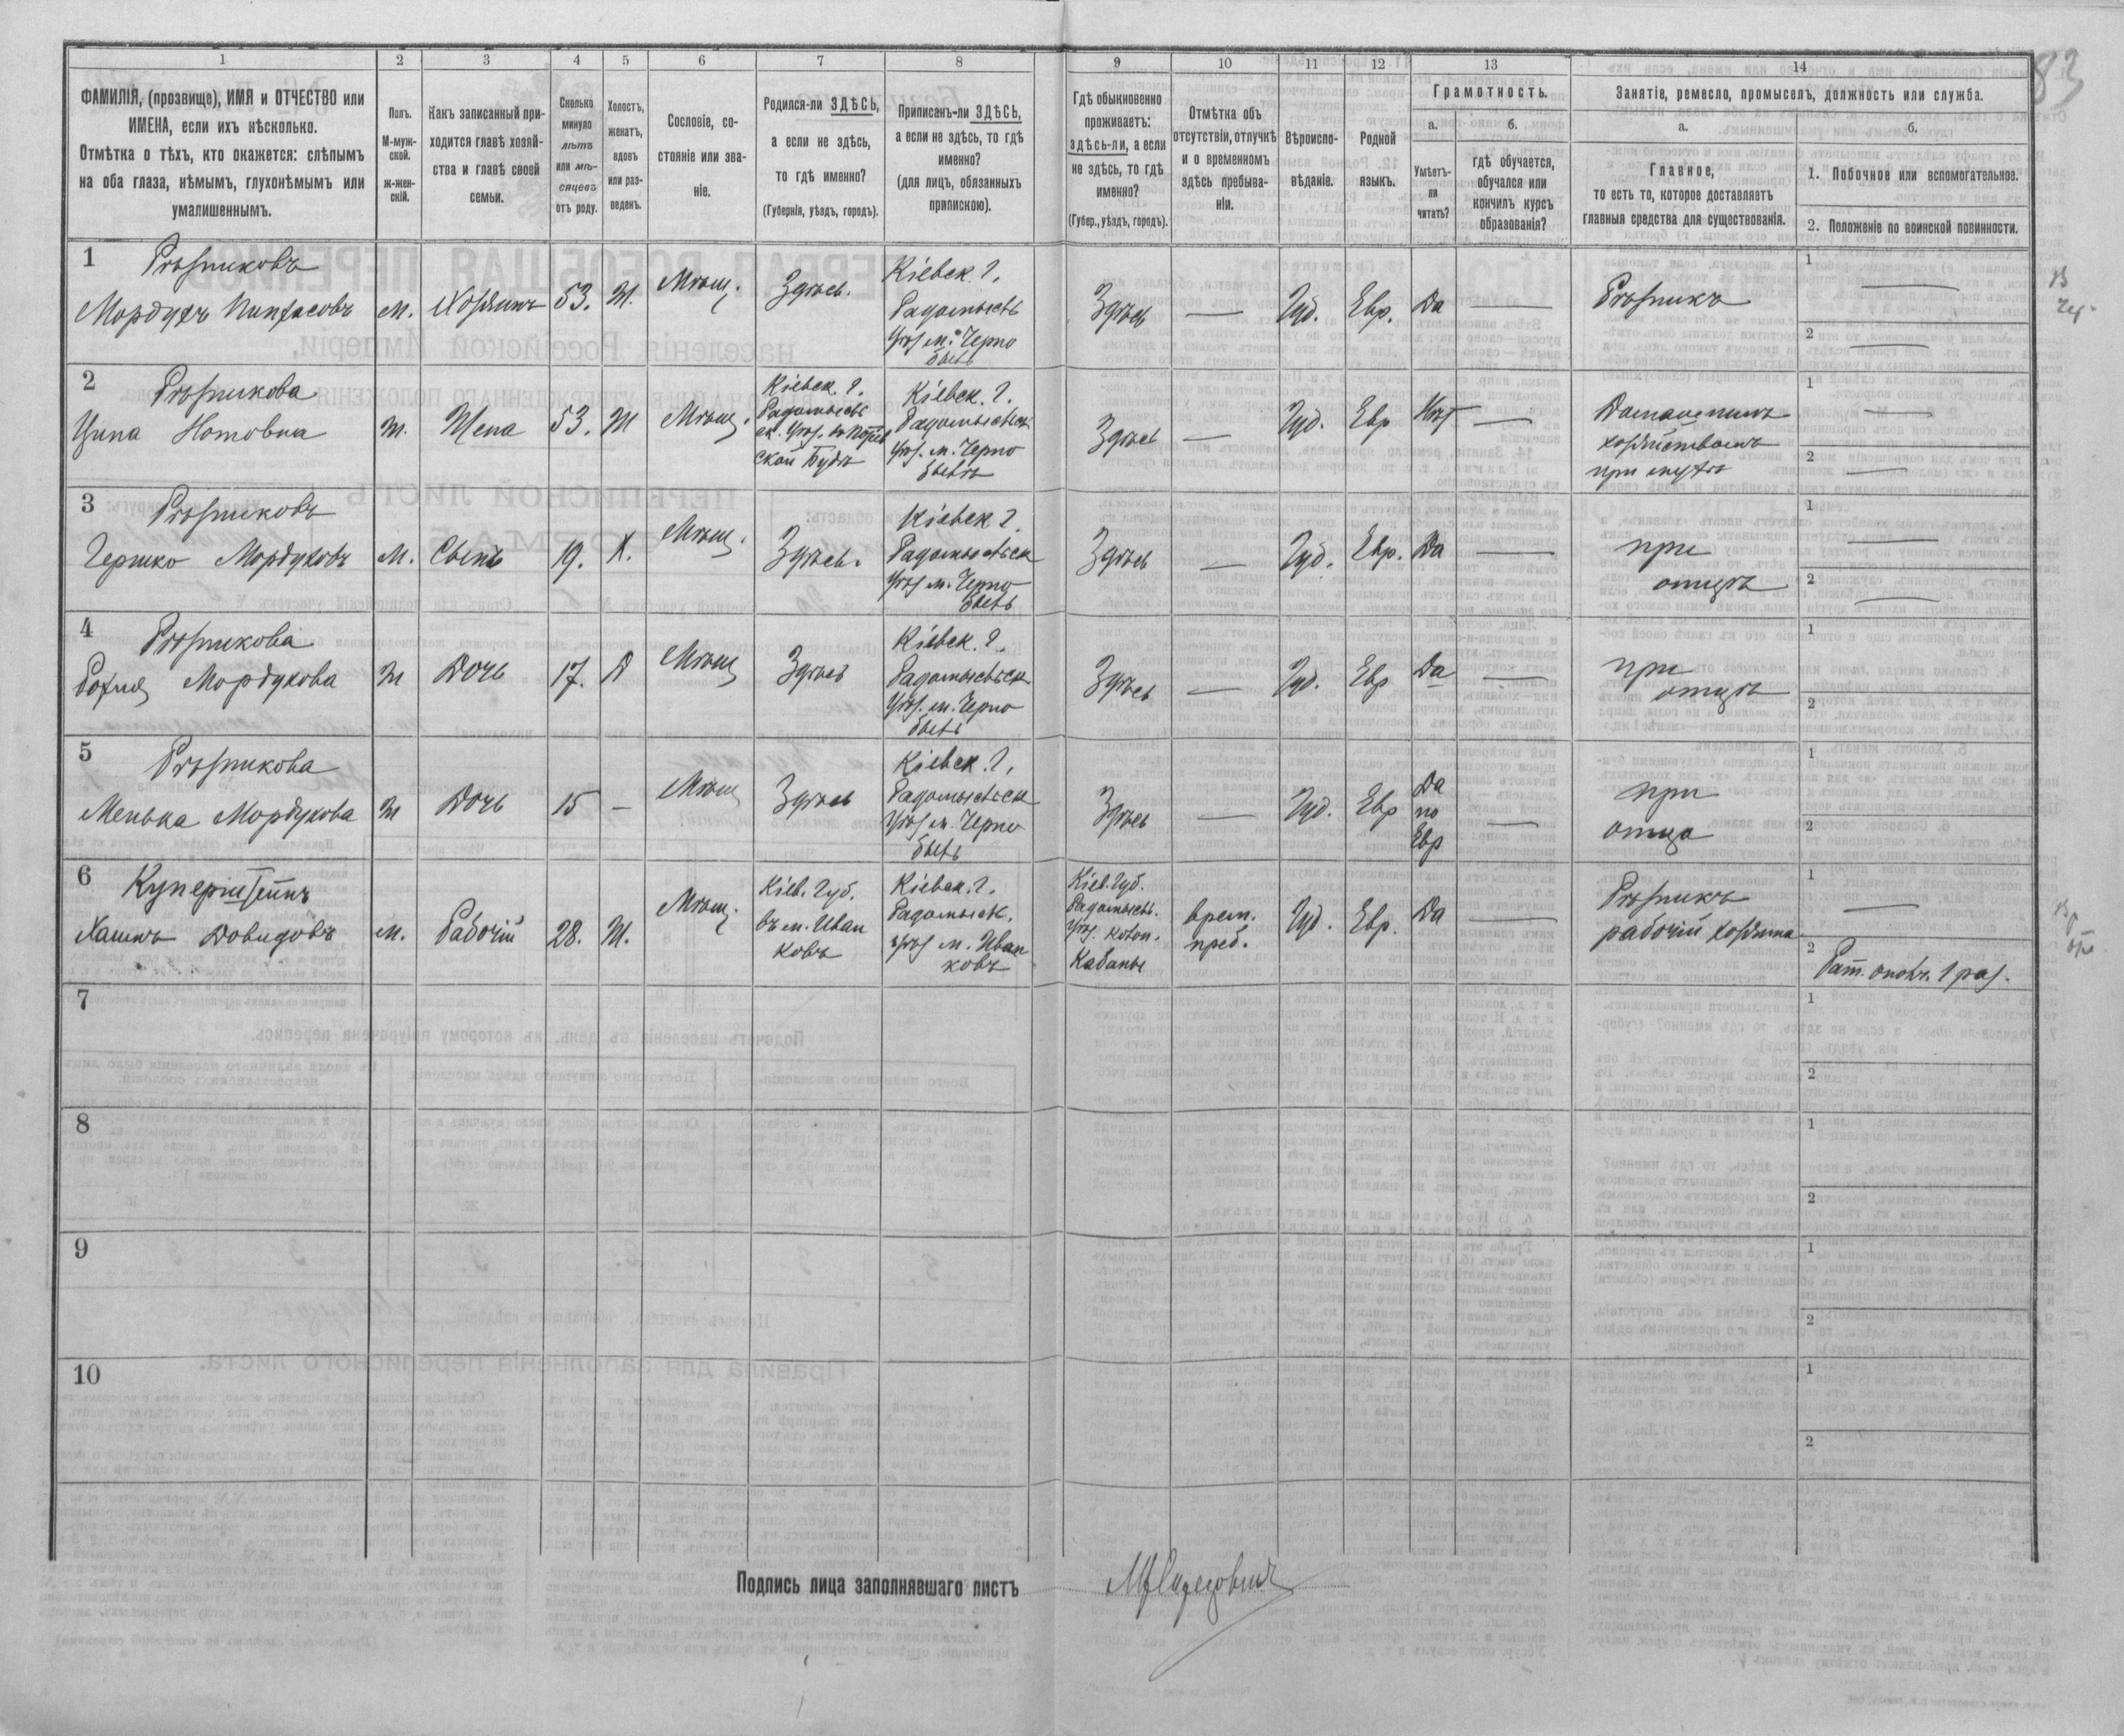 83
1 2 3 4 5 6 7 8 9 10 11 12 13 14
ФАМИЛІЯ, (прозвище), ИМЯ и ОТЧЕСТВО или
ИМЕНА, если ихъ нѣсколько.
Отмѣтка о тѣхъ, кто окажется: слѣпымъ
на оба глаза, нѣмымъ, глухонѣмымъ или
умалишеннымъ.
Полъ.
М-муж-
ской.
ж-жен-
скій.
Какъ записанный при-
ходится главѣ хозяй-
ства и главѣ своей
семьи.
Сколько
минуло
лѣтъ
или мѣ-
сяцевъ
отъ роду.
Холостъ,
женатъ,
вдовъ
или раз-
веденъ.
Сословіе, со-
стояніе или зва-
ніе.
Родился-ли ЗДѢСЬ,
а если не здѣсь,
то гдѣ именно?
(Губернія, уѣздъ, городъ).
Приписанъ-ли ЗДѢСЬ,
а если не здѣсь, то гдѣ
именно?
(для лицъ, обязанныхъ
припискою).
Гдѣ обыкновенно
проживаетъ:
здѣсь-ли, а если
не здѣсь, то гдѣ
именно?
(Губер., уѣздъ, городъ).
Отмѣтка объ
отсутствіи, отлучкѣ
и о временномъ
здѣсь пребыва-
ніи.
Вѣроиспо-
вѣданіе.
Родной
языкъ.
Грамотность.
а.
Умѣетъ-
ли
читать?
б.
гдѣ обучается,
обучался или
кончилъ курсъ
образованія?
Занятіе, ремесло, промыселъ, должность или служба.
а.
Главное,
то есть то, которое доставляетъ
главныя средства для существованія.
б.
1. Побочное или вспомогательное.
2. Положеніе по воинской повинности.
1
Рѣзниковъ
Мордухъ Пинхасовъ
м.
Хозяинъ
53.
Ж.
Мѣщ.
Здѣсь.
Кіевск. г.
Радомысль
уѣз м. Черно
быль
Здѣсь
—
Іуд.
Евр.
Да
—
Рѣзникъ
1 —
2 —
2
Рѣзникова
Ципа Нотовна
Ж.
Жена
53.
Ж
Мѣщ.
Кіевск. г.
Радомысль
ск. уѣз.
ской Будѣ
Кіевск. г.
Радомысльск
уѣз. м. Черно
быль
Здѣсь
—
Іуд.
Евр
Нѣт
Домашнимъ
хозяйствомъ
при мужѣ
1 —
2 —
3
Рѣзниковъ
Гершко Мордуховъ
М.
Сынъ
19.
Х.
Мѣщ.
Здѣсь.
Кіевск г.
Радомысльск
уѣз м. Черно
быль
Здѣсь
—
Іуд.
Евр.
Да
—
при
отцѣ
1 —
2 —
4
Рѣзникова
Рохля Мордухова
Ж
Дочь
17.
Д
Мѣщ
Здѣсь
Кіевск. г.
Радомысльск
уѣз. м. Черно
быль
Здѣсь
—
Іуд.
Евр
Да
—
при
отцѣ
1
2
5
Рѣзникова
Менька Мордухова
Ж
Дочь
15
—
Мѣщ
Здѣсь
Кіевск. г.
Радомысльск
уѣз м. Черно
быль
Здѣсь
—
Іуд.
Евр
Да
по
Евр
—
при
отца
1
2
6
Куперштейнъ
Хаимъ Довидовъ
М.
Рабочій
28.
Ж.
Мѣщ.
Кіев. Губ.
въ м. Иван
ковъ
Кіевск. г.
Радомысль.
уѣз м. Иван
ковъ
Кіев. Губ.
Радомысль.
уѣз. колон.
Кабаны
врем.
преб.
Іуд.
Евр.
Да
—
Рѣзникъ
рабочій хозяина
1 —
2 Рат. ополч. 1 раз.
7
1
2
8
1
2
9
1
2
10
1
2
Подпись лица заполнявшаго листъ